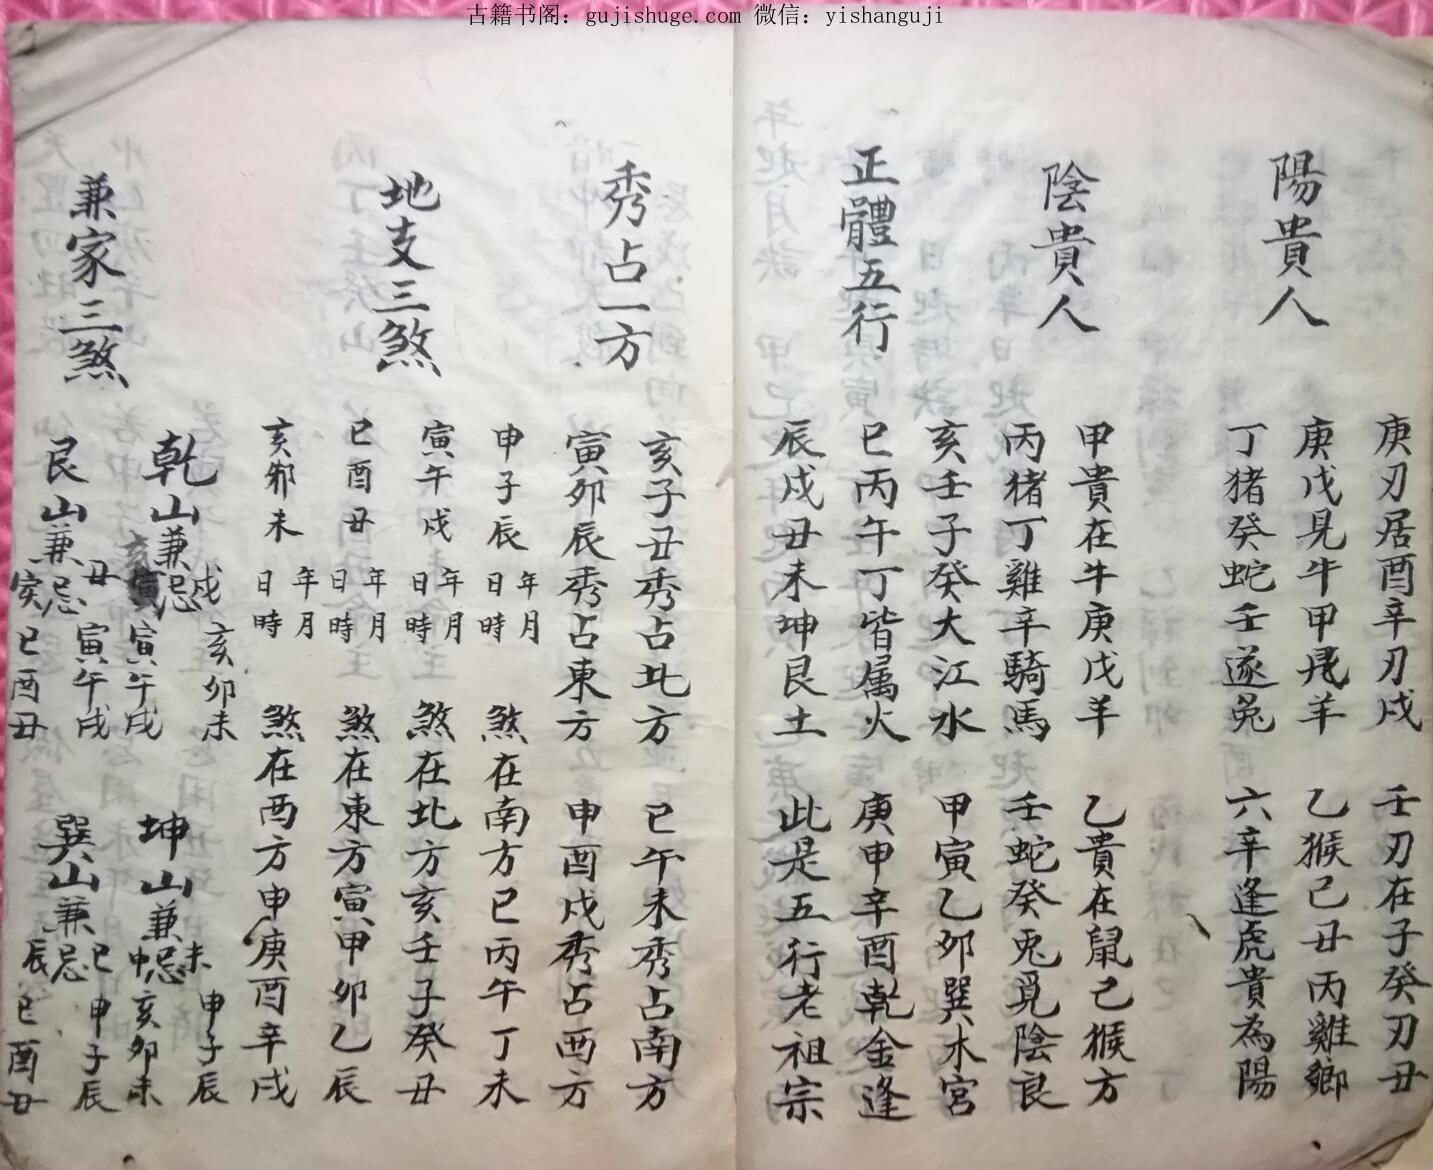 古籍书阁：gujishuge.com 微信：yishanguji
庚刃居酉辛刃戌 壬刃在子癸刃丑
陽貴人
庚戊見牛甲尾羊 乙猴己丑丙雞鄉
丁猪癸蛇壬遂兔 六辛逢虎貴為陽
陰貴人
甲貴在牛庚戊羊 乙貴在鼠己猴方
丙猪丁雞辛騎馬 壬蛇癸兎覓陰良
正體五行
亥壬子癸大江水 甲寅乙卯巽木宮
巳丙午丁皆属火 庚申辛酉乾金逢
辰戌丑未坤艮土 此是五行老祖宗
秀占一方
亥子丑秀占北方 巳午未秀占南方
寅卯辰秀占東方 申酉戌秀占西方
地支三煞
申子辰 年月日時 煞在南方巳丙午丁未
寅午戌 年月日時 煞在北方亥壬子癸丑
巳酉丑 年月日時 煞在東方寅甲卯乙辰
亥卯未 年月日時 煞在西方申庚酉辛戌
兼家三煞
乾山兼 戌 忌 亥卯未
寅午戌
坤山兼 未 忌 申子辰
申 亥卯未
艮山兼 丑 忌 寅午戌
寅 巳酉丑
巽山兼 巳 忌 申子辰
辰 巳酉丑